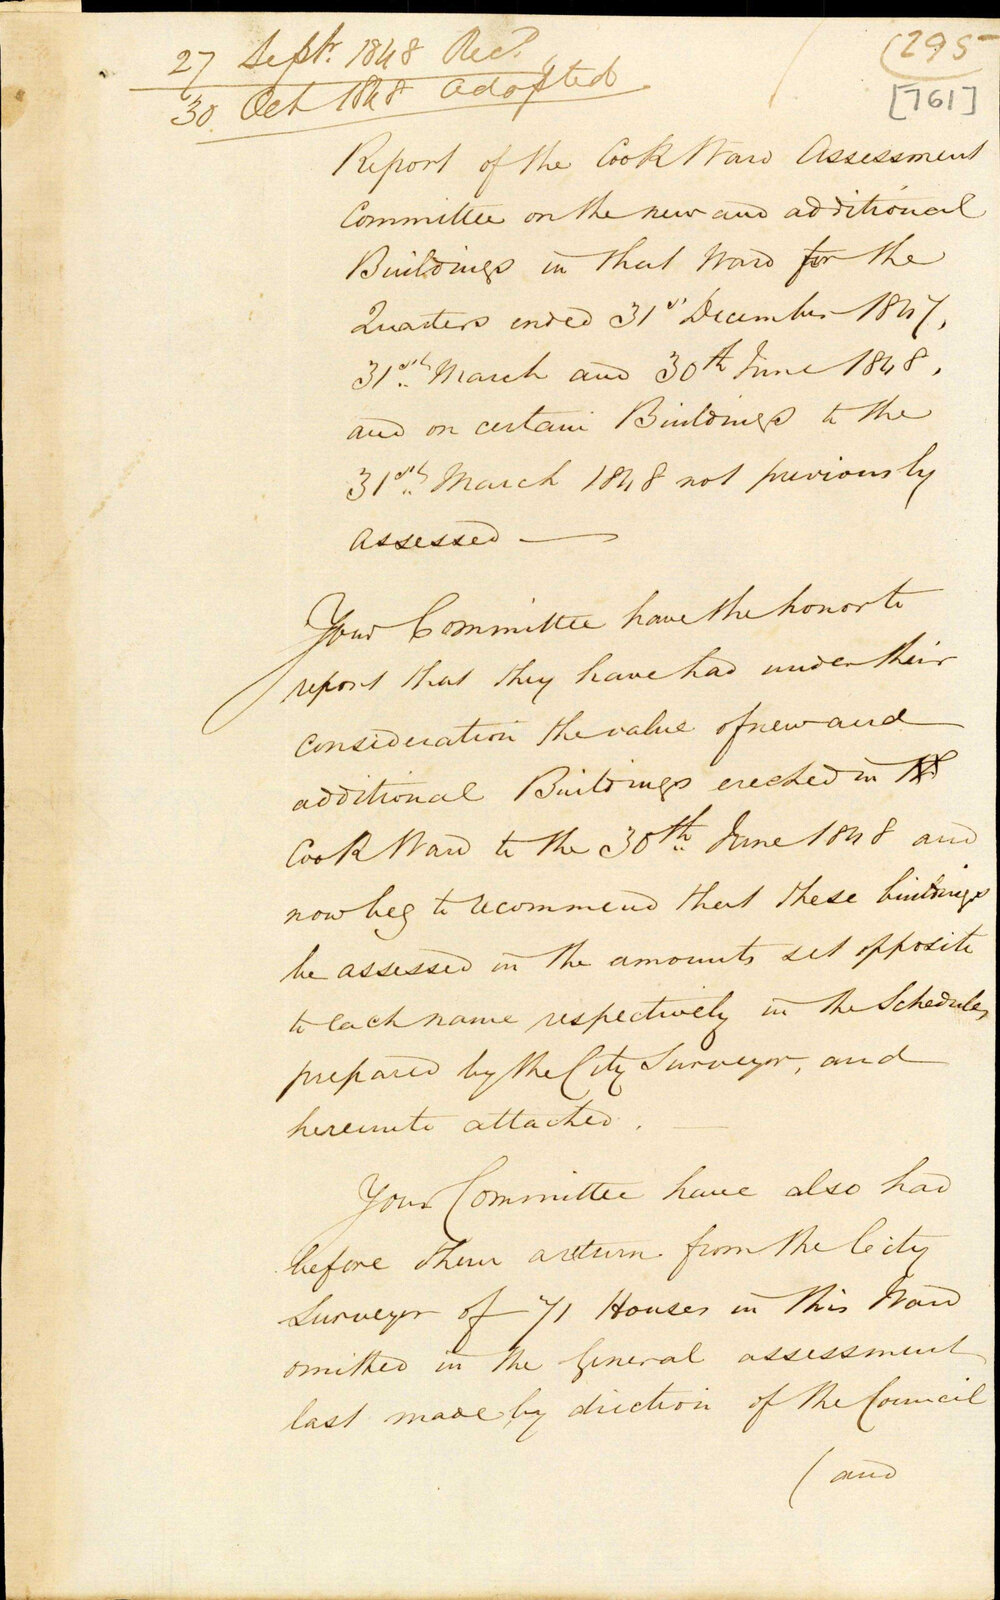 27 Septr. 1848 Recd.
30 Oct 1848 adopted
(295
[761]
Report of the Cook Ward Assessment
Committee on the new and additional
Buildings in that Ward for the
Quarters ended 31st December 1847,
31st March and 30th June 1848,
and on certain Buildings to the
31st March 1848 not previously
assessed —
Your Committee have the honor to
report that they have had under their
consideration the value of new and
additional Buildings erected in
Cook Ward to the 30th June 1848 and
now beg to recommend that these buildings
be assessed in the amounts set opposite
to each name respectively in the Schedules
prepared by the City Surveyor, and
hereunto attached. —
Your Committee have also had
before them a return from the City
Surveyor of 71 Houses in this Ward
omitted in the General assessment
last made by direction of the Council
(and